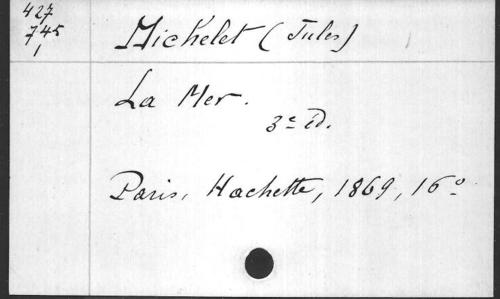 427
745
1
Michelet (Jules)
La Mer.
3e éd.
Paris, Hachette, 1869, 16o